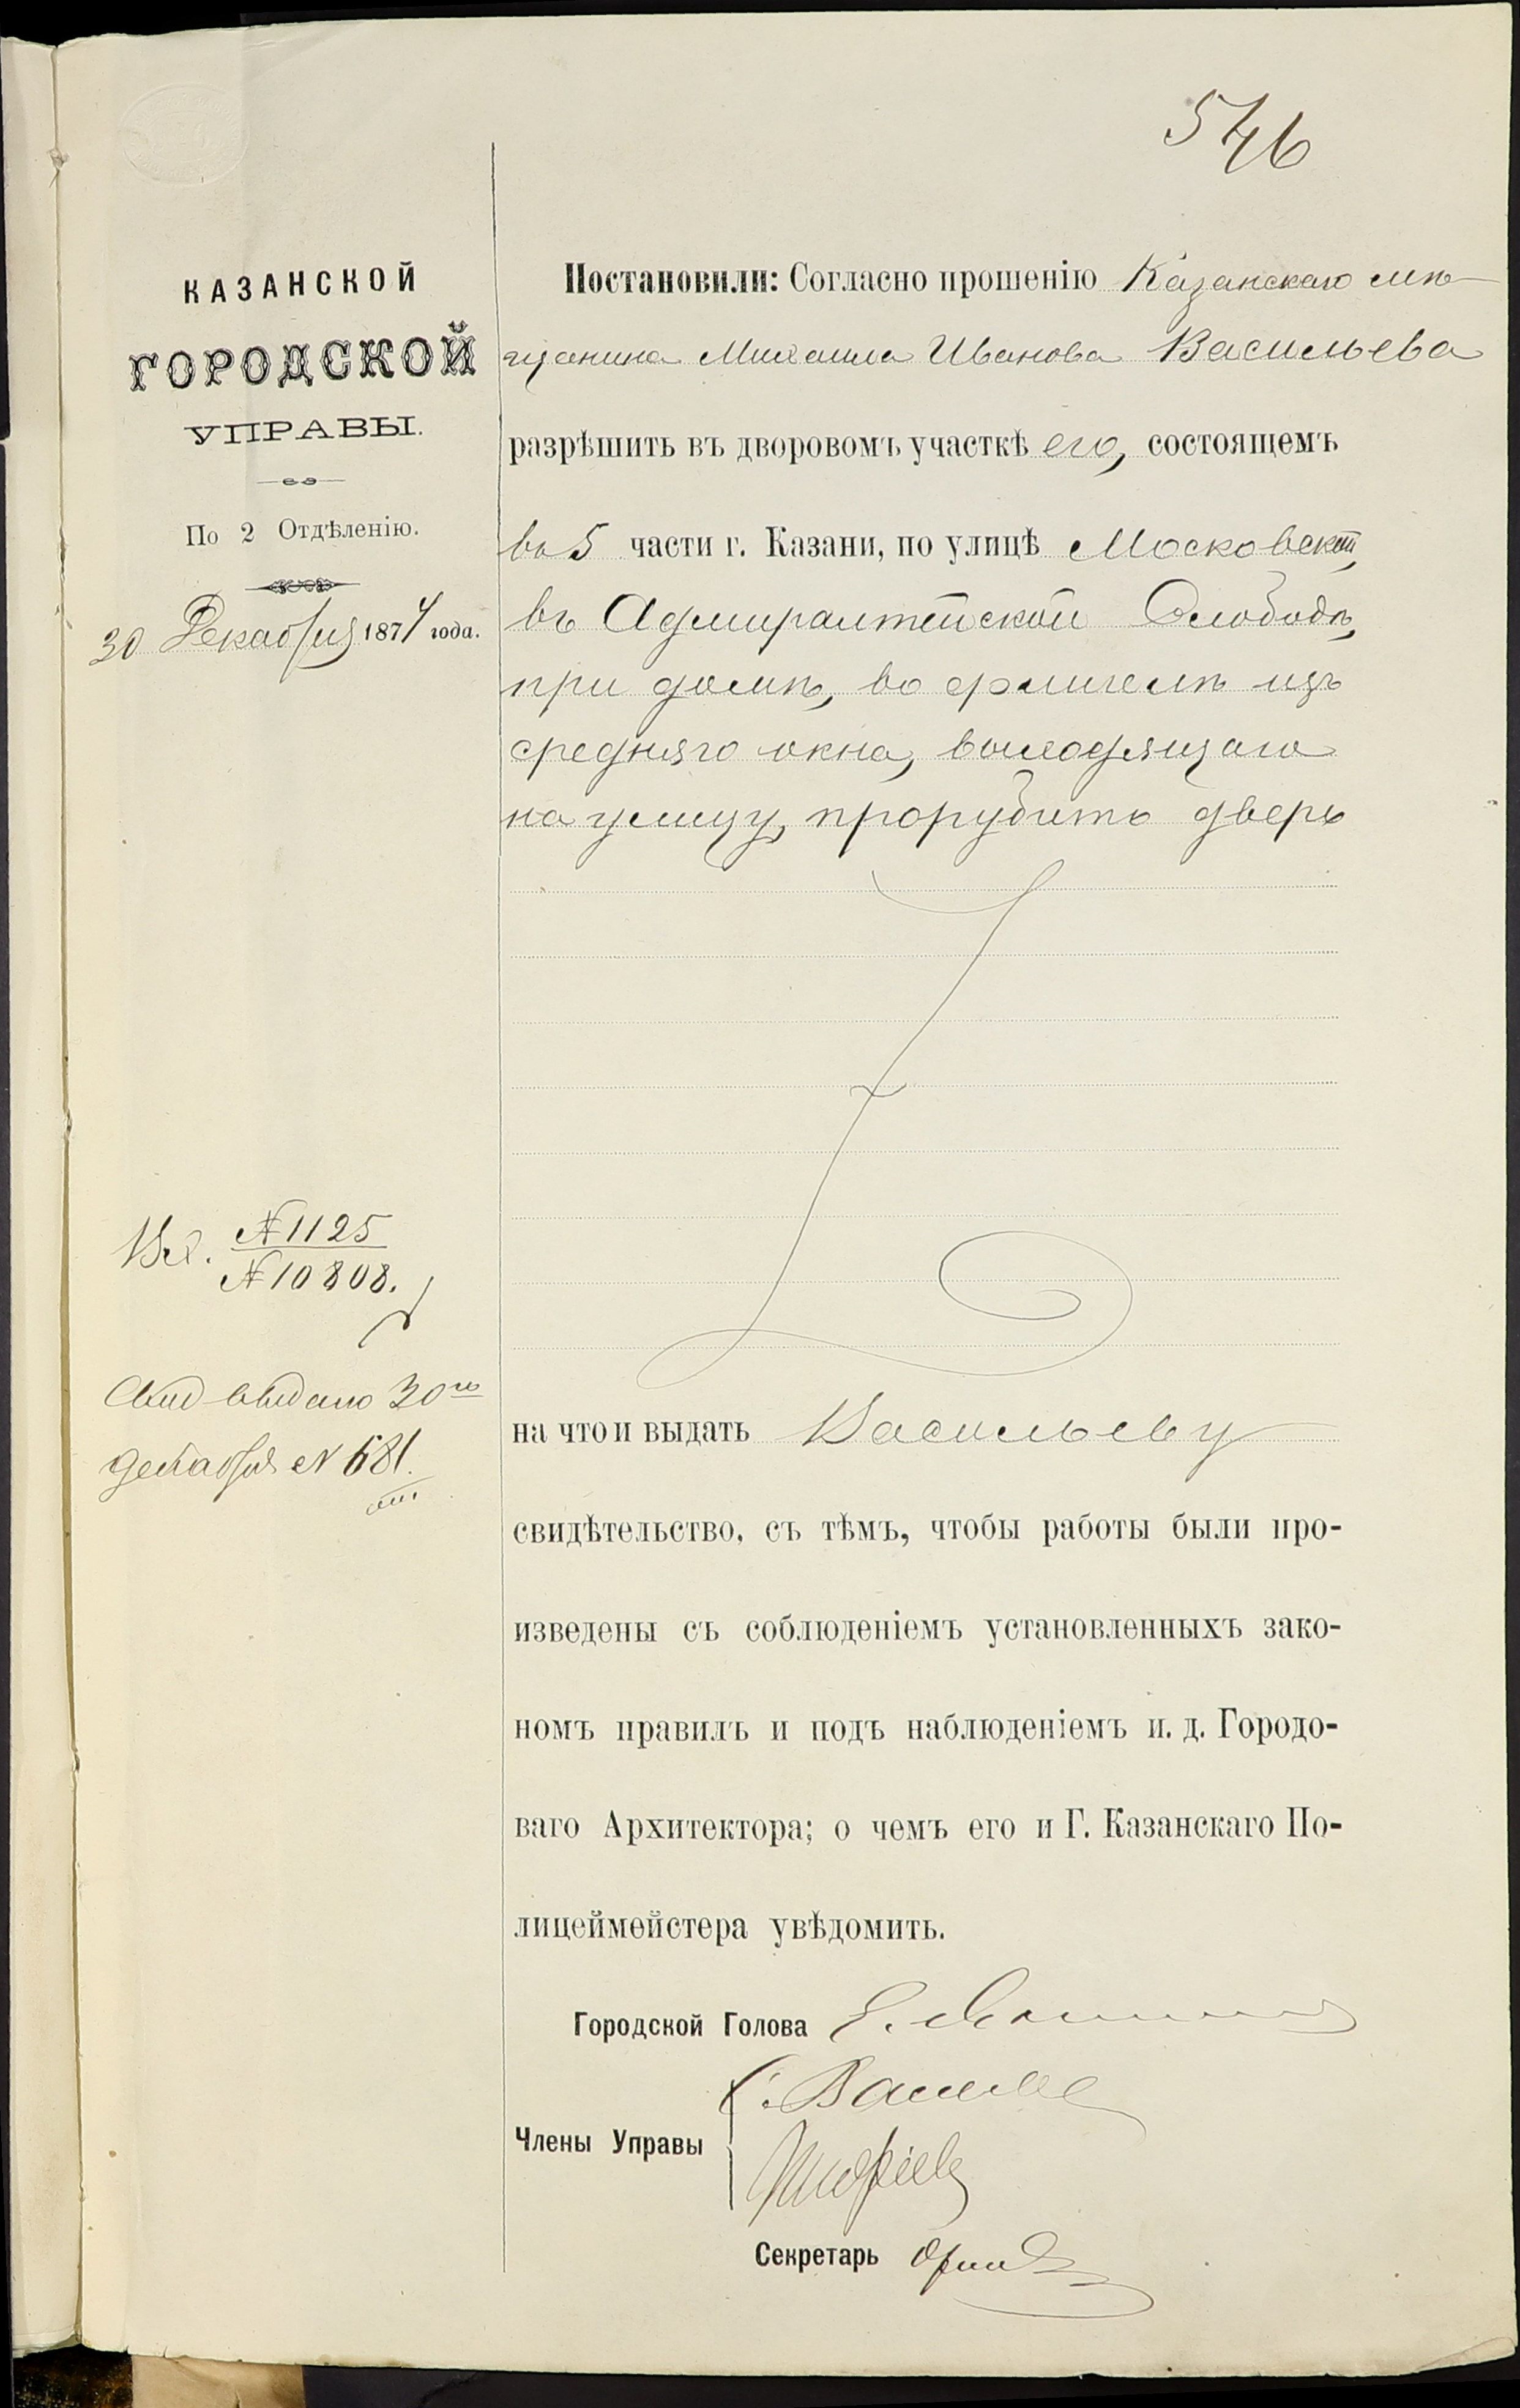 546
КАЗАНСКОЙ
ГОРОДСКОЙ
УПРАВЫ.
По 2 Отдѣленію.
30 Декабря 1874 года.
Вх. №1125
№10808.
Свид выдано 30го
декабря № 681.
Постановили: Согласно прошенію Казанскаго мѣ-
щанина Михаила Иванова Васильева
разрѣшить въ дворовомъ участкѣ его, состоящемъ
въ 5 части г. Казани, по улицѣ Московской,
въ Адмиралтейской Слободѣ,
при домѣ, во флигелѣ изъ
средняго окна, выходящаго
на улицу, прорубить дверь
на что и выдать Васильеву
свидѣтельство, съ тѣмъ, чтобы работы были про-
изведены съ соблюденіемъ установленныхъ зако-
номъ правилъ и подъ наблюденіемъ и. д. Городо-
ваго Архитектора; о чемъ его и Г. Казанскаго По-
лицеймейстера увѣдомить.
Городской Голова
Члены Управы
Секретарь